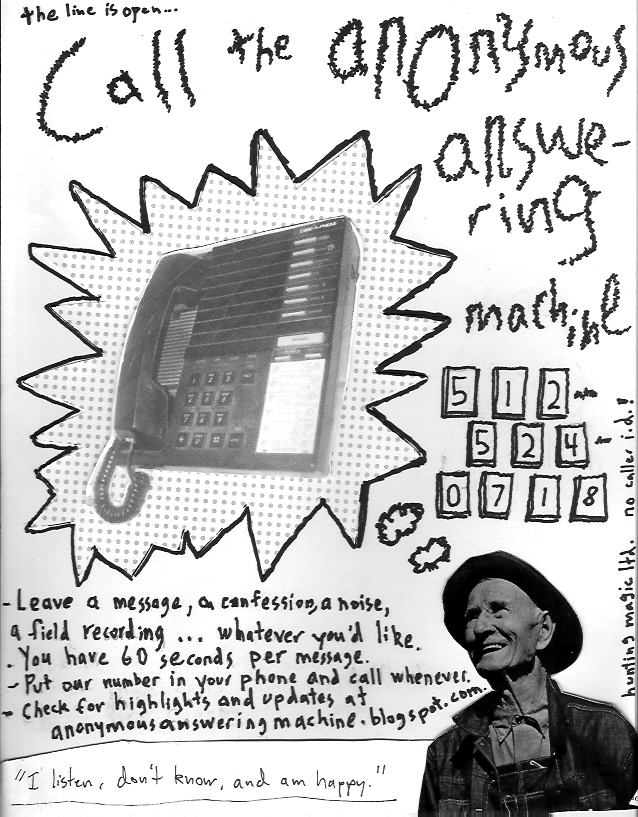 the line is open...
Call the anonymous
answe-
ring
machine
512-
524-
0718
no caller i.d.!
hunting magic ltd.
- Leave a message, a confession, a noise,
a field recording ... whatever you'd like.
. You have 60 seconds per message.
- Put our number in your phone and call whenever.
- Check for highlights and updates at
anonymousansweringmachine.blogspot.com.
"I listen, don't know, and am happy."